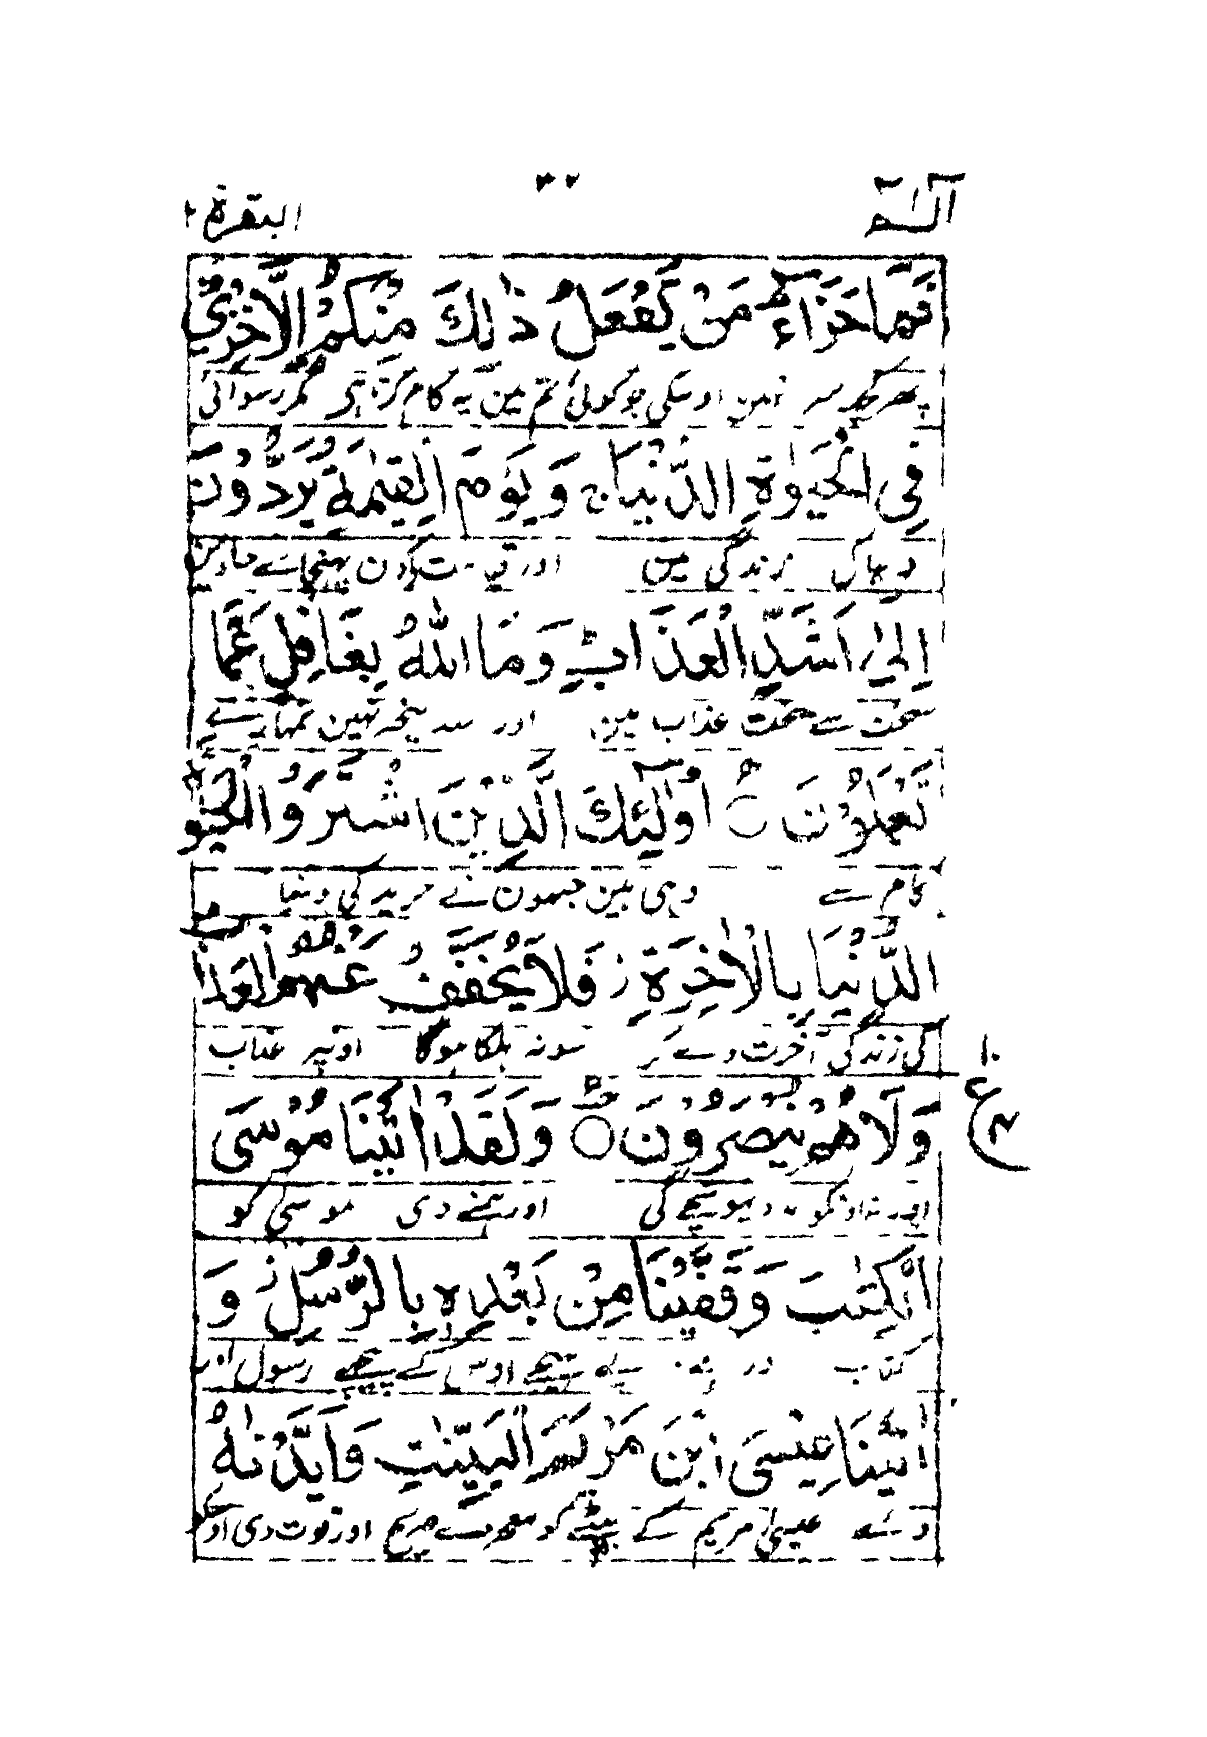 الٓمّٓ ٢٠ البقرة ٢
فَمَا جَزَآءُ مَنْ يَّفْعَلُ ذٰلِكَ مِنْكُمْ اِلَّا خِزْیٌ
پھر کچھ سزا نہین اوسکی جو کوئی تم مین یہ کام کرتا ہی مگر رسوائی
فِی الْحَیٰوةِ الدُّنْیَا ج وَ یَوْمَ الْقِیٰمَةِ یُرَدُّوْنَ
زندگی مین اور قیامت کے دن پہنچائے جاوین
اِلٰٓی اَشَدِّ الْعَذَابِ ط وَ مَا اللّٰهُ بِغَافِلٍ عَمَّا
سخت سے سخت عذاب مین اور نہین تمہارے
تَعْمَلُوْنَ ○ اُولٰٓئِكَ الَّذِیْنَ اشْتَرَوُا الْحَیٰوةَ
کام سے وہی ہین جنہون نے خرید کی دنیا
الدُّنْیَا بِالْاٰخِرَةِ ز فَلَا یُخَفَّفُ عَنْهُمُ الْعَذَابُ
کی زندگی آخرت دے کر سو نہ ہلکا ہوگا اونپر عذاب
وَ لَا هُمْ یُنْصَرُوْنَ ○ وَ لَقَدْ اٰتَیْنَا مُوْسَی
١٠ ع
اور نہ اونکو مدد پہونچے گی اور ہمنے دی موسیٰ کو
الْكِتٰبَ وَ قَفَّیْنَا مِنْۢ بَعْدِهٖ بِالرُّسُلِ ز وَ
کتاب اور پے پیچھے اوس کے پیچھے رسول اور
اٰتَیْنَا عِیْسَی ابْنَ مَرْیَمَ الْبَیِّنٰتِ وَ اَیَّدْنٰهُ
دئے عیسیٰ مریم کے بیٹے کو معجزے صریح اور قوت دی اوسکو